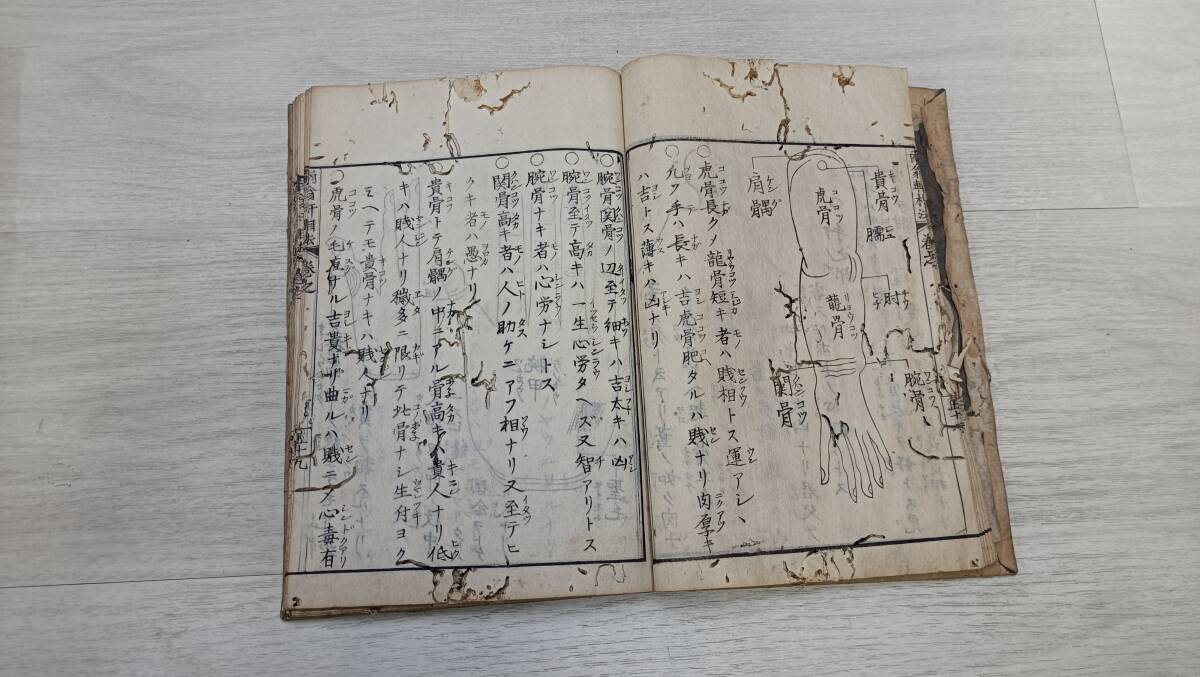 貴骨
キコツ
臑
肘
腕骨
ワンコツ
虎骨
ココツ
龍骨
リョウコツ
関骨
クハンコツ
肩髃
ケングウ
虎骨長クメ龍骨短キ者ハ賎相トス運アシヽ
○凡ソ手ハ長キハ吉虎骨肥タルハ賎ナリ肉厚キ
ハ吉トス薄キハ凶ナリ
○腕骨関骨ノ辺至テ細キハ吉太キハ凶
○腕骨至テ高キハ一生心労タヘズ又智アリトス
○腕骨ナキ者ハ心労ナシトス
○関骨高キ者ハ人ノ助ケニアフ相ナリ又至テヒ
クキ者ハ愚ナリ
○貴骨トテ肩髃ノ中ニアル骨高キハ貴人ナリ低
キハ賎人ナリ穢多ニ限リテ此骨ナシ生付ヨク
ミヘテモ貴骨ナキハ賎人ナリ
○虎骨ノ毛直ナル吉貴ナリ曲ルハ賎ニメ心毒有
巻之